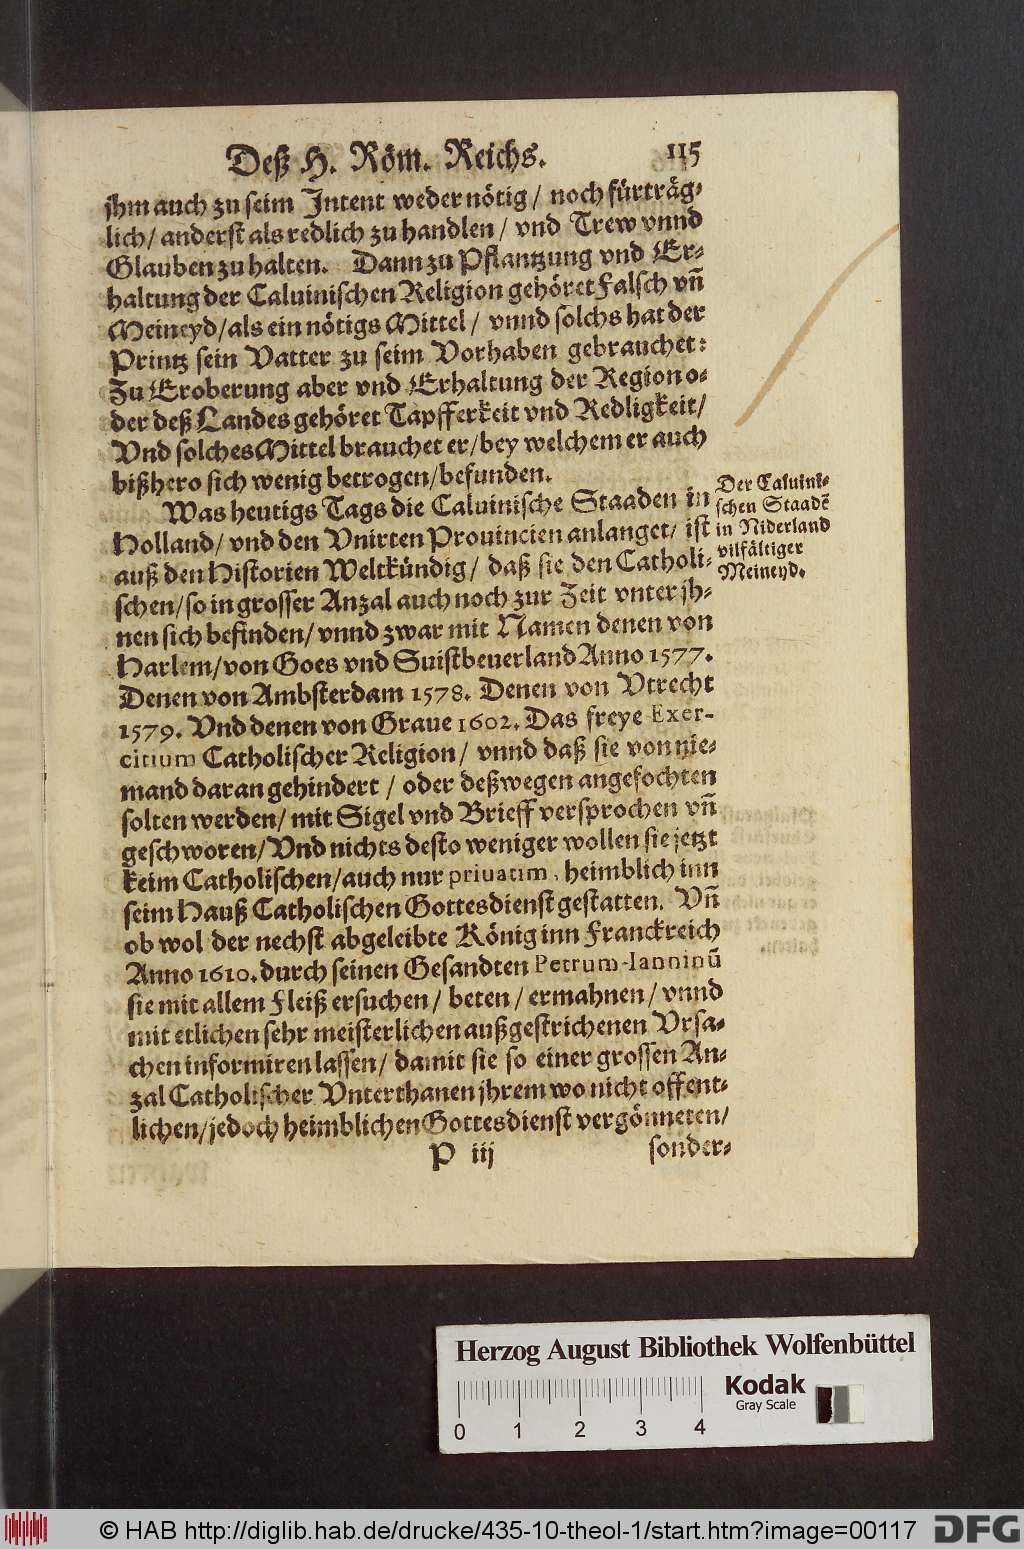 Deß H. Röm. Reichs. 115
jhm auch zu seim Intent weder nötig / noch fürträg-
lich / anderst als redlich zu handlen / vnd Trew vnnd
Glauben zu halten. Dann zu Pflantzung vnd Er-
haltung der Caluinischen Religion gehöret Falsch vñ
Meineyd / als ein nötigs Mittel / vnnd solchs hat der
Printz sein Vatter zu seim Vorhaben gebrauchet:
Zu Eroberung aber vnd Erhaltung der Region o-
der deß Landes gehöret Tapfferkeit vnd Redligkeit /
Vnd solches Mittel brauchet er / bey welchem er auch
bißhero sich wenig betrogen / befunden.
Was heutigs Tags die Caluinische Staaden in
Holland / vnd den Vnirten Prouincien anlanget / ist
auß den Historien Weltkündig / daß sie den Catholi-
schen / so in grosser Anzal auch noch zur Zeit vnter jh-
nen sich befinden / vnnd zwar mit Namen denen von
Harlem / von Goes vnd Suistbeuerland Anno 1577.
Denen von Ambsterdam 1578. Denen von Vtrecht
1579. Vnd denen von Graue 1602. Das freye Exer-
citium Catholischer Religion / vnnd daß sie von nie-
mand daran gehindert / oder deßwegen angefochten
solten werden / mit Sigel vnd Brieff versprochen vñ
geschworen / Vnd nichts desto weniger wollen sie jetzt
keim Catholischen / auch nur priuatim, heimblich inn
seim Hauß Catholischen Gottesdienst gestatten. Vñ
ob wol der nechst abgeleibte König inn Franckreich
Anno 1610. durch seinen Gesandten Petrum-Ianninū
sie mit allem Fleiß ersuchen / beten / ermahnen / vnnd
mit etlichen sehr meisterlichen außgestrichenen Vrsa-
chen informiren lassen / damit sie so einer grossen An-
zal Catholischer Vnterthanen jhrem wo nicht offent-
lichen / jedoch heimblichen Gottesdienst vergönneten /
P iij sonder-
Der Caluini-
schen Staadē
in Niderland
vilfältiger
Meineyd.
Herzog August Bibliothek Wolfenbüttel
Kodak
Gray Scale
0 1 2 3 4
© HAB http://diglib.hab.de/drucke/435-10-theol-1/start.htm?image=00117
DFG